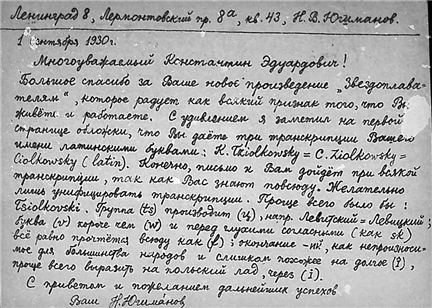 Ленинград 8, Лермонтовский пр. 8а, кв. 43, Н. В. Юшманов.
1 сентября 1930 г.
Многоуважаемый Константин Эдуардович!
Большое спасибо за Ваше новое произведение „Звездоплава-
телям“, которое радует как всякий признак того, что Вы
живёте и работаете. С удивлением я заметил на первой
странице обложки, что Вы даёте три транскрипции Вашего
имени латинскими буквами: K. Tsiolkowsky = C. Ziolkowsky =
Ciolkowsky (latin). Конечно, письмо к Вам дойдёт при всякой
транскрипции, так как Вас знают повсюду. Желательно
лишь унифицировать транскрипции. Проще всего было бы:
Tsiolkovski. Группа (ts) производит (ц), напр. Левитский = Левицкий;
буква (v) короче чем (w) и перед глухими согласными (как sk)
всё равно прочтётся всюду как (f); окончание -ий, как непроизноси-
мое для большинства народов и слишком похожее на долгое (i),
проще всего выразить на польский лад, через (i).
С приветом и пожеланием дальнейших успехов
Ваш Н. Юшманов